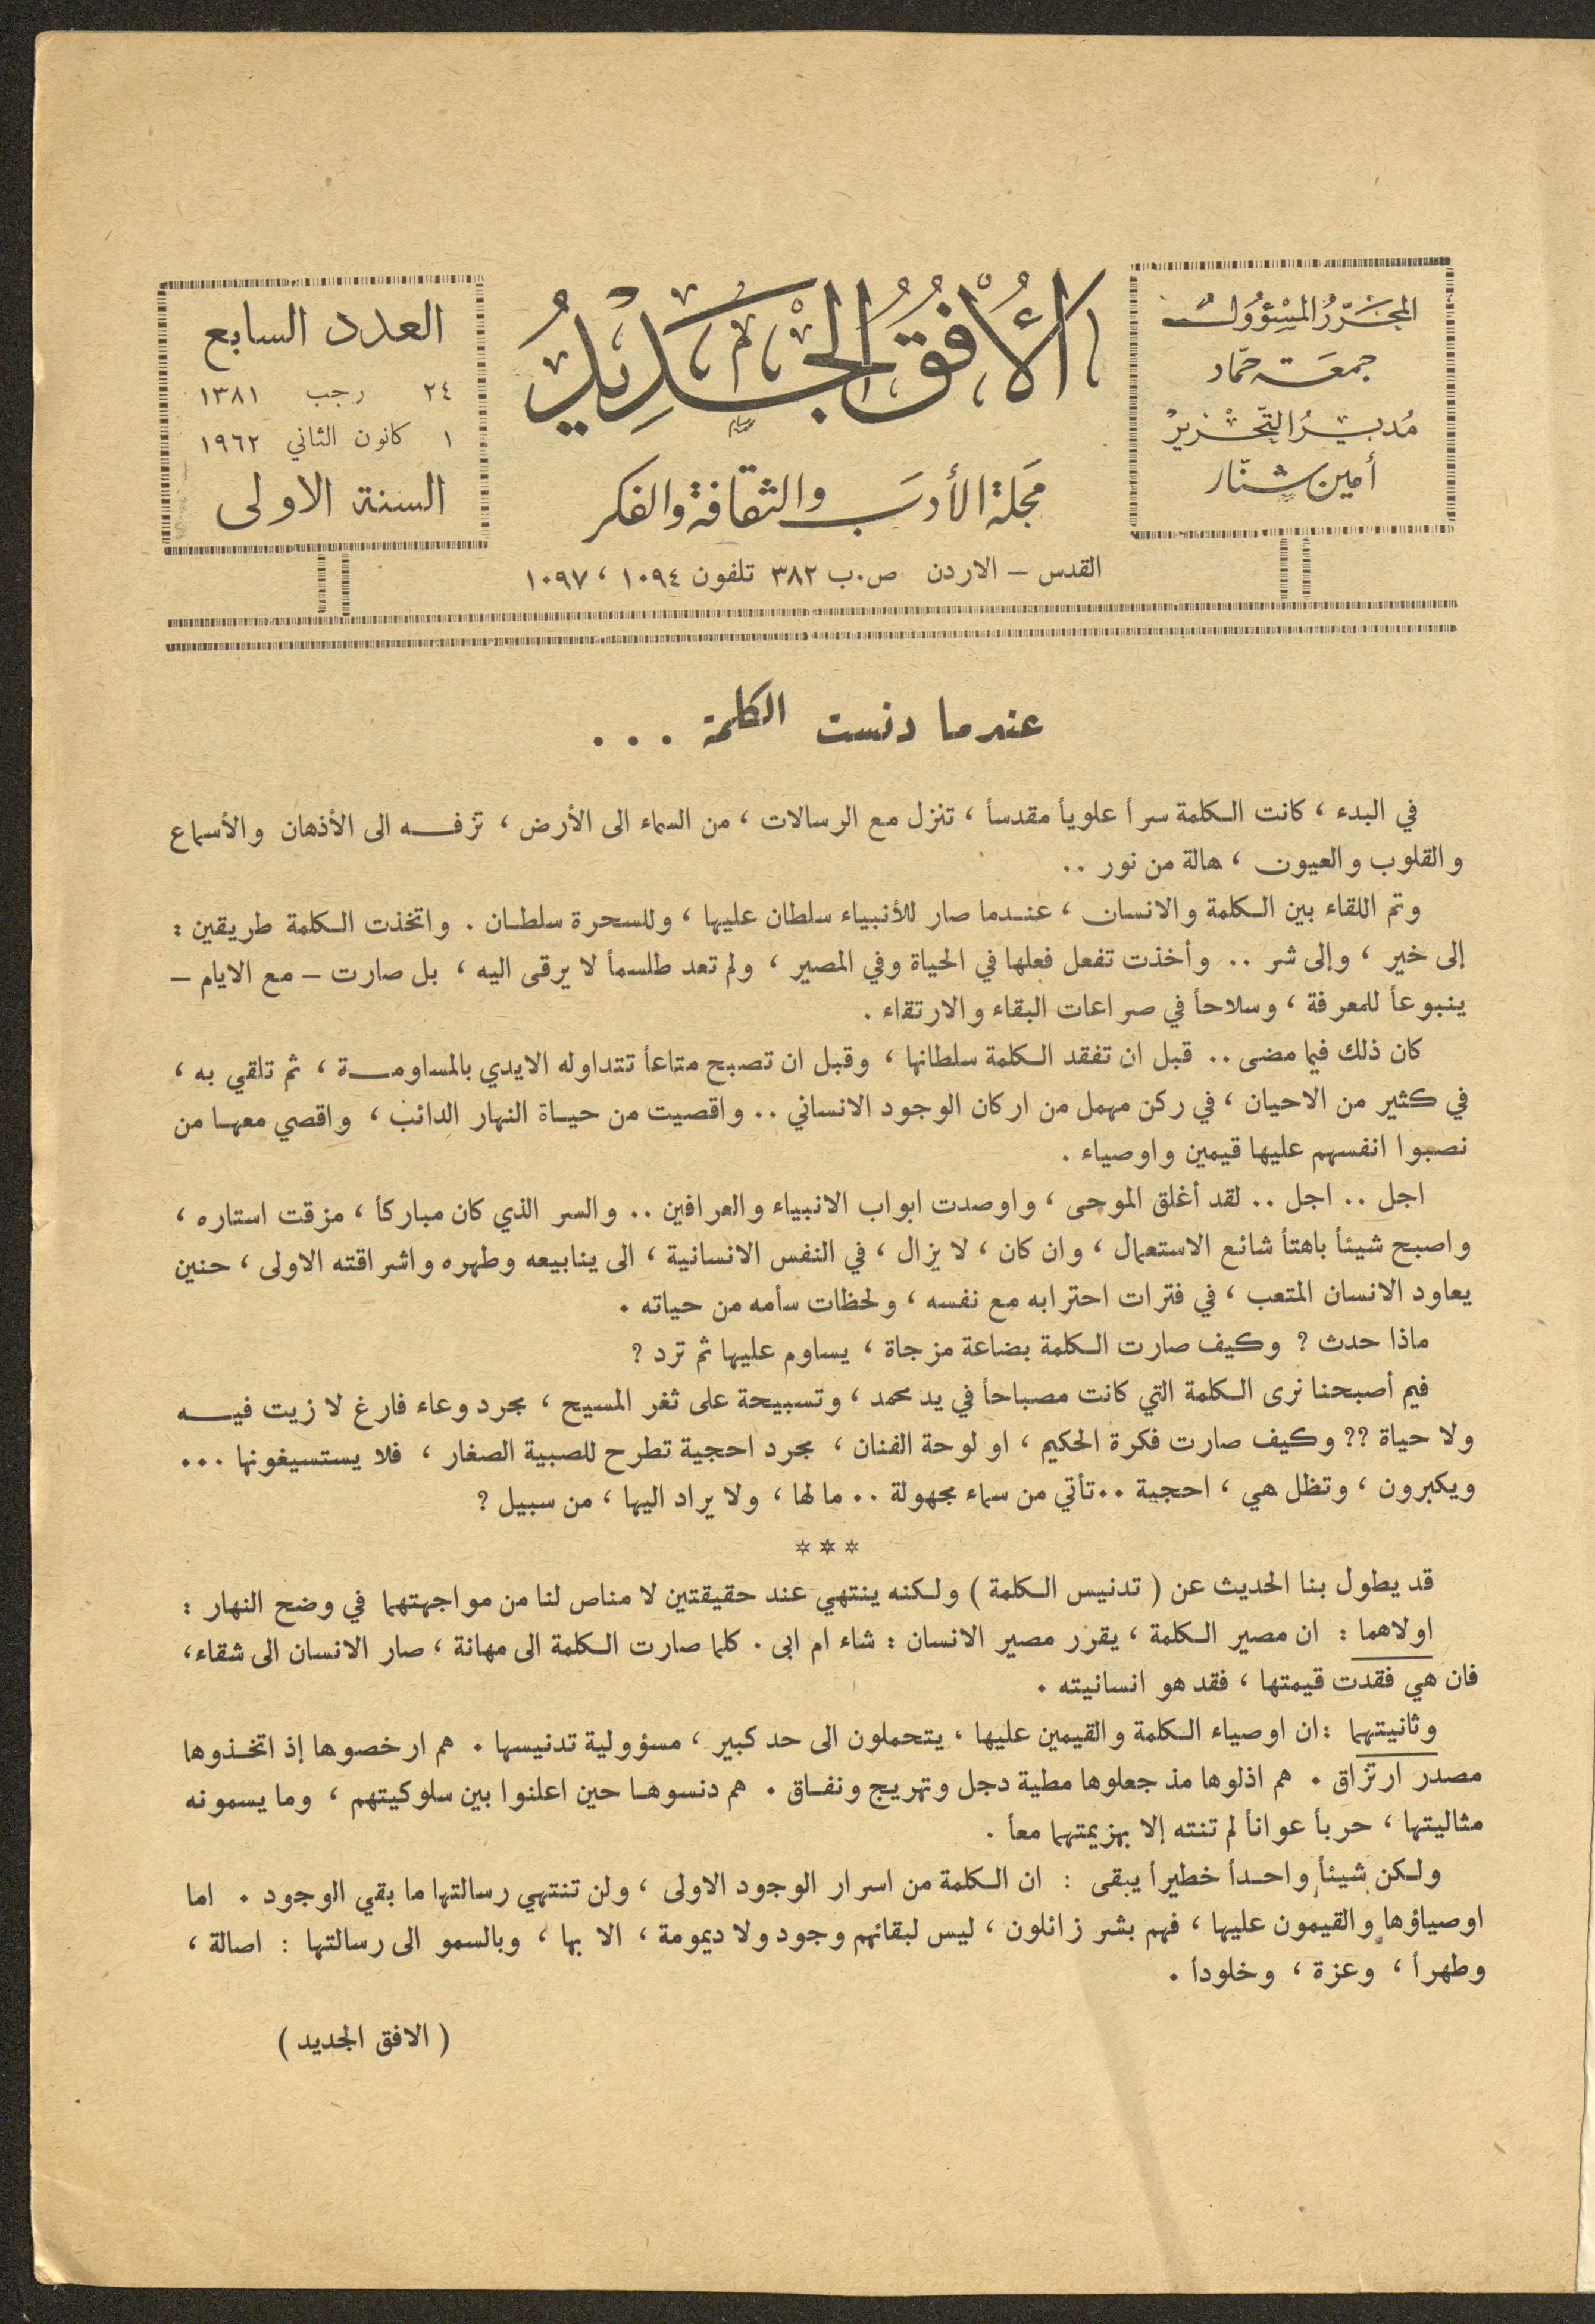 المحرر المسؤول
جمعة حمّاد
مدير التحرير
أمين شنّار
الأفق الجديد
مجلة الأدب والثقافة والفكر
القدس – الاردن ص.ب ٣٨٢ تلفون ١٠٩٤ ، ١٠٩٧
العدد السابع
٢٤ رجب ١٣٨١
١ كانون الثاني ١٩٦٢
السنة الاولى
عندما دنست الكلمة . . .
في البدء ، كانت الكلمة سراً علوياً مقدساً ، تنزل مع الرسالات ، من السماء الى الأرض ، تزفه الى الأذهان والأسماع
والقلوب والعيون ، هالة من نور ..
وتم اللقاء بين الكلمة والانسان ، عندما صار للأنبياء سلطان عليها ، وللسحرة سلطان . واتخذت الكلمة طريقين :
إلى خير ، وإلى شر .. وأخذت تفعل فعلها في الحياة وفي المصير ، ولم تعد طلسماً لا يرقى اليه ، بل صارت – مع الايام –
ينبوعاً للمعرفة ، وسلاحاً في صراعات البقاء والارتقاء .
كان ذلك فيما مضى .. قبل ان تفقد الكلمة سلطانها ، وقبل ان تصبح متاعاً تتداوله الايدي بالمساومة ، ثم تلقي به ،
في كثير من الاحيان ، في ركن مهمل من اركان الوجود الانساني .. واقصيت من حياة النهار الدائب ، واقصي معها من
نصبوا انفسهم عليها قيمين واوصياء .
اجل .. اجل .. لقد أغلق الموحى ، واوصدت ابواب الانبياء والعرافين .. والسر الذي كان مباركاً ، مزقت استاره ،
واصبح شيئاً باهتاً شائع الاستعمال ، وان كان ، لا يزال ، في النفس الانسانية ، الى ينابيعه وطهره واشراقته الاولى ، حنين
يعاود الانسان المتعب ، في فترات احترابه مع نفسه ، ولحظات سأمه من حياته .
ماذا حدث ? وكيف صارت الكلمة بضاعة مزجاة ، يساوم عليها ثم ترد ?
فيم أصبحنا نرى الكلمة التي كانت مصباحاً في يد محمد ، وتسبيحة على ثغر المسيح ، مجرد وعاء فارغ لا زيت فيه
ولا حياة ?? وكيف صارت فكرة الحكيم ، او لوحة الفنان ، مجرد احجية تطرح للصبية الصغار ، فلا يستسيغونها ...
ويكبرون ، وتظل هي ، احجية .. تأتي من سماء مجهولة .. ما لها ، ولا يراد اليها ، من سبيل ?
* * *
قد يطول بنا الحديث عن ( تدنيس الكلمة ) ولكنه ينتهي عند حقيقتين لا مناص لنا من مواجهتهما في وضح النهار :
اولاهما : ان مصير الكلمة ، يقرر مصير الانسان : شاء ام ابى . كلما صارت الكلمة الى مهانة ، صار الانسان الى شقاء ،
فان هي فقدت قيمتها ، فقد هو انسانيته .
وثانيتهما : ان اوصياء الكلمة والقيمين عليها ، يتحملون الى حد كبير ، مسؤولية تدنيسها . هم ارخصوها إذ اتخذوها
مصدر ارتزاق . هم اذلوها مذ جعلوها مطية دجل وتهريج ونفاق . هم دنسوها حين اعلنوا بين سلوكيتهم ، وما يسمونه
مثاليتها ، حرباً عواناً لم تنته إلا بهزيمتهما معاً .
ولكن شيئاً واحداً خطيراً يبقى : ان الكلمة من اسرار الوجود الاولى ، ولن تنتهي رسالتها ما بقي الوجود . اما
اوصياؤها والقيمون عليها ، فهم بشر زائلون ، ليس لبقائهم وجود ولا ديمومة ، الا بها ، وبالسمو الى رسالتها : اصالة ،
وطهراً ، وعزة ، وخلوداً .
( الافق الجديد )